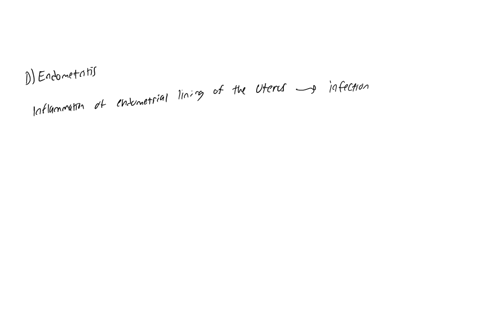 D) Endometritis
Inflammation of endometrial lining of the uterus → infection